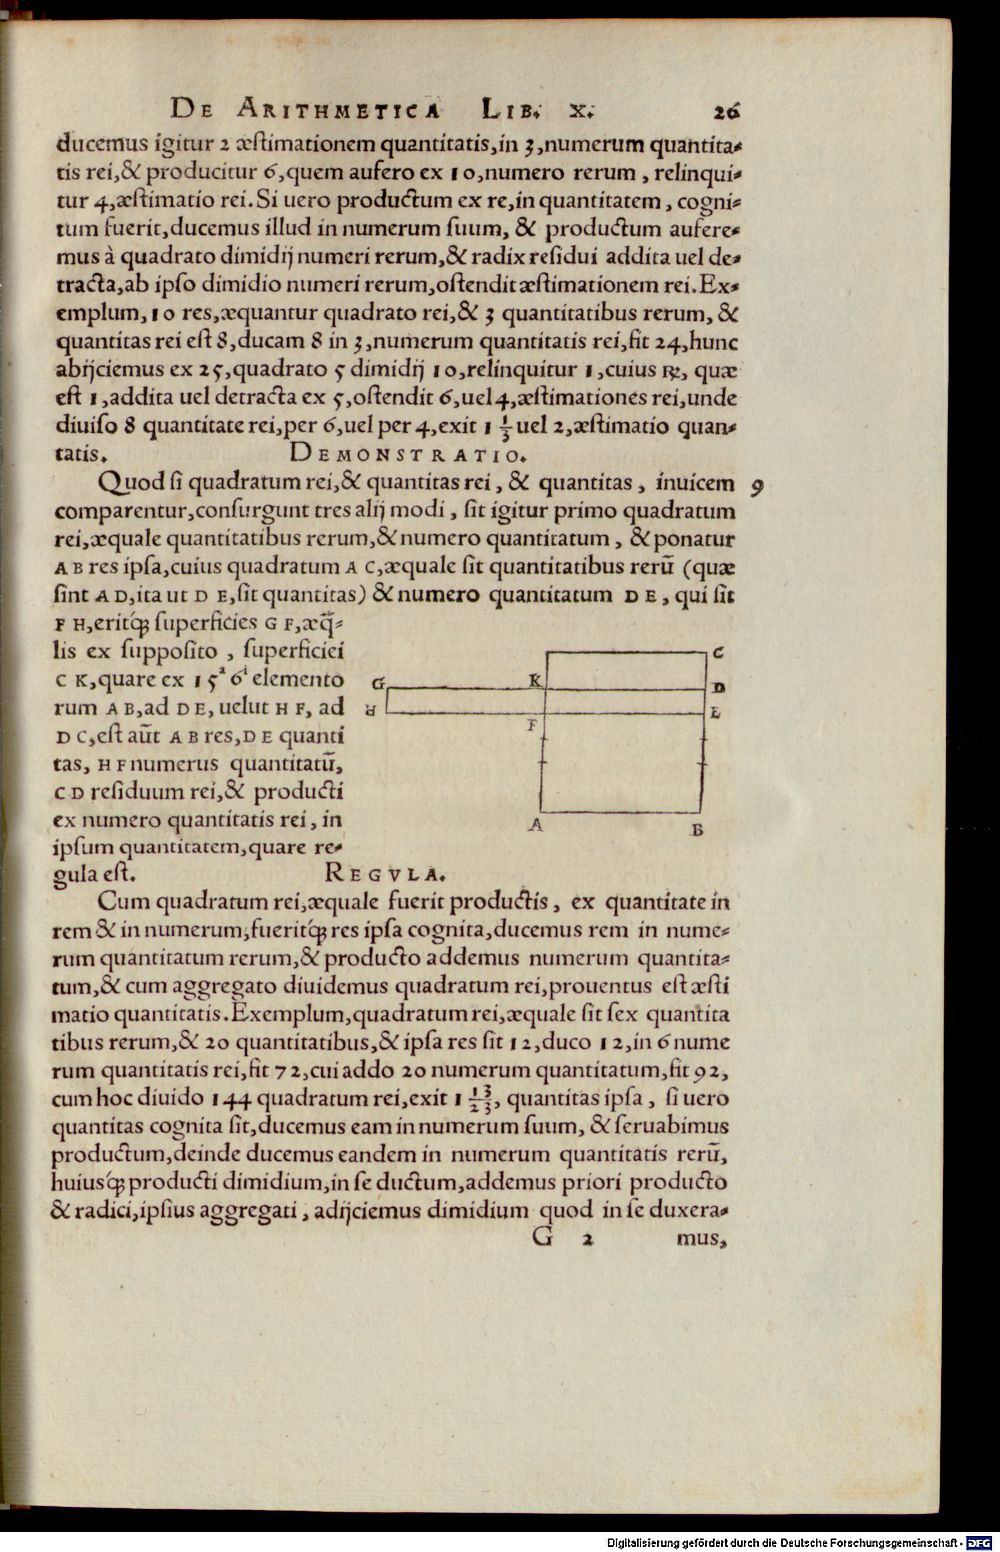 DE ARITHMETICA LIB. X. 26
ducemus igitur 2 æstimationem quantitatis, in 3, numerum quantita⸗
tis rei, & producitur 6, quem aufero ex 10, numero rerum, relinqui⸗
tur 4, æstimatio rei. Si uero productum ex re, in quantitatem, cogni⸗
tum fuerit, ducemus illud in numerum suum, & productum aufere⸗
mus à quadrato dimidij numeri rerum, & radix residui addita uel de⸗
tracta, ab ipso dimidio numeri rerum, ostendit æstimationem rei. Ex⸗
emplum, 10 res, æquantur quadrato rei, & 3 quantitatibus rerum, &
quantitas rei est 8, ducam 8 in 3, numerum quantitatis rei, fit 24, hunc
abijciemus ex 25, quadrato 5 dimidij 10, relinquitur 1, cuius ℞, quæ
est 1, addita uel detracta ex 5, ostendit 6, uel 4, æstimationes rei, unde
diuiso 8 quantitate rei, per 6, uel per 4, exit 1 1/3 uel 2, æstimatio quan⸗
tatis. DEMONSTRATIO.
Quod si quadratum rei, & quantitas rei, & quantitas, inuicem 9
comparentur, consurgunt tres alij modi, sit igitur primo quadratum
rei, æquale quantitatibus rerum, & numero quantitatum, & ponatur
A B res ipsa, cuius quadratum A C, æquale sit quantitatibus rerũ (quæ
sint A D, ita ut D E, sit quantitas) & numero quantitatum D E, qui sit
F H, eritq́ꝫ superficies G F, æq̃⸗
lis ex supposito, superficiei
C K, quare ex 15ª 6ⁱ elemento
rum A B, ad D E, uelut H F, ad
D C, est aũt A B res, D E quanti
tas, H F numerus quantitatũ,
C D residuum rei, & producti
ex numero quantitatis rei, in
ipsum quantitatem, quare re⸗
gula est. REGVLA.
C
G K D
H F E
A B
Cum quadratum rei, æquale fuerit productis, ex quantitate in
rem & in numerum, fueritq́ꝫ res ipsa cognita, ducemus rem in nume⸗
rum quantitatum rerum, & producto addemus numerum quantita⸗
tum, & cum aggregato diuidemus quadratum rei, prouentus est æsti
matio quantitatis. Exemplum, quadratum rei, æquale sit sex quantita
tibus rerum, & 20 quantitatibus, & ipsa res sit 12, duco 12, in 6 nume
rum quantitatis rei, fit 72, cui addo 20 numerum quantitatum, fit 92,
cum hoc diuido 144 quadratum rei, exit 1 13/23, quantitas ipsa, si uero
quantitas cognita sit, ducemus eam in numerum suum, & seruabimus
productum, deinde ducemus eandem in numerum quantitatis rerũ,
huiusq́ꝫ producti dimidium, in se ductum, addemus priori producto
& radici, ipsius aggregati, adijciemus dimidium quod in se duxera⸗
G 2 mus,
Digitalisierung gefördert durch die Deutsche Forschungsgemeinschaft - DFG